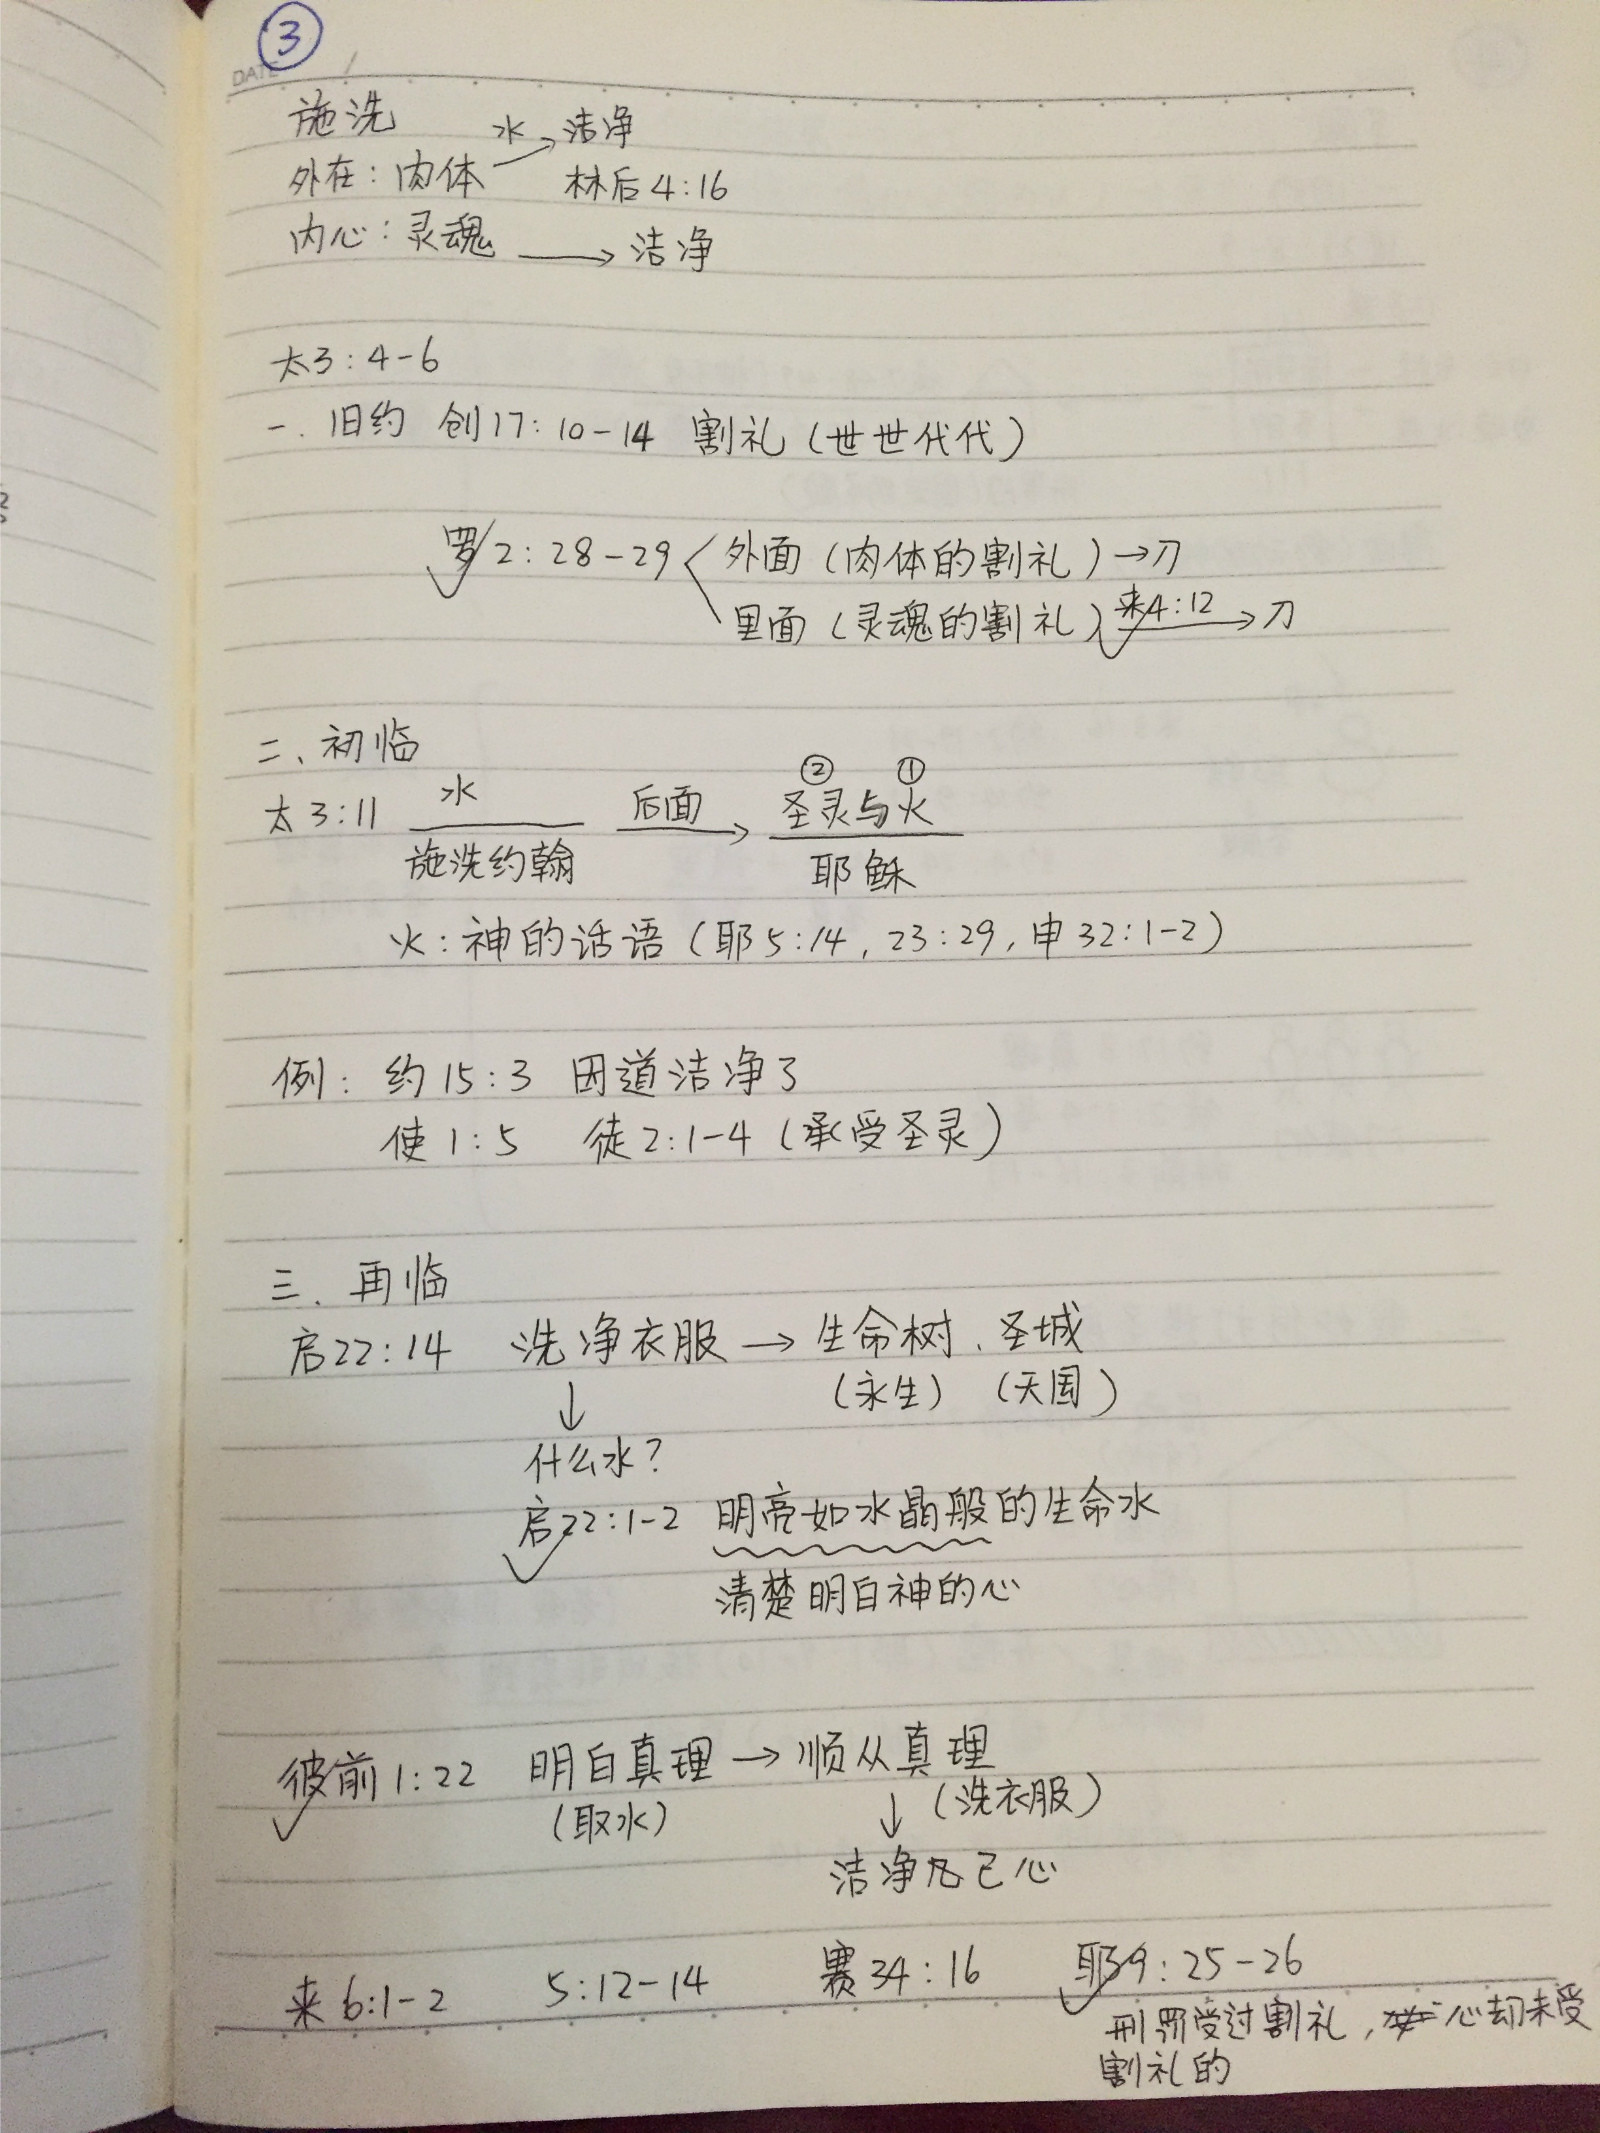 ③
DATE
施洗 水 洁净
外在：肉体 → 林后4:16
内心：灵魂 → 洁净
太3:4-6
一. 旧约 创17:10-14 割礼（世世代代）
罗2:28-29 外面（肉体的割礼）→刀
里面（灵魂的割礼）来4:12 → 刀
二、初临
② ①
太3:11 水 后面 → 圣灵与火
施洗约翰 耶稣
火：神的话语（耶5:14, 23:29, 申32:1-2）
例：约15:3 因道洁净了
使1:5 徒2:1-4（承受圣灵）
三. 再临
启22:14 洗净衣服 → 生命树、圣城
↓ （永生）（天国）
什么水？
启22:1-2 明亮如水晶般的生命水
清楚明白神的心
彼前1:22 明白真理 → 顺从真理
（取水） ↓ （洗衣服）
洁净 己心
来6:1-2 5:12-14 赛34:16 耶9:25-26
刑罚受过割礼，心却未受
割礼的